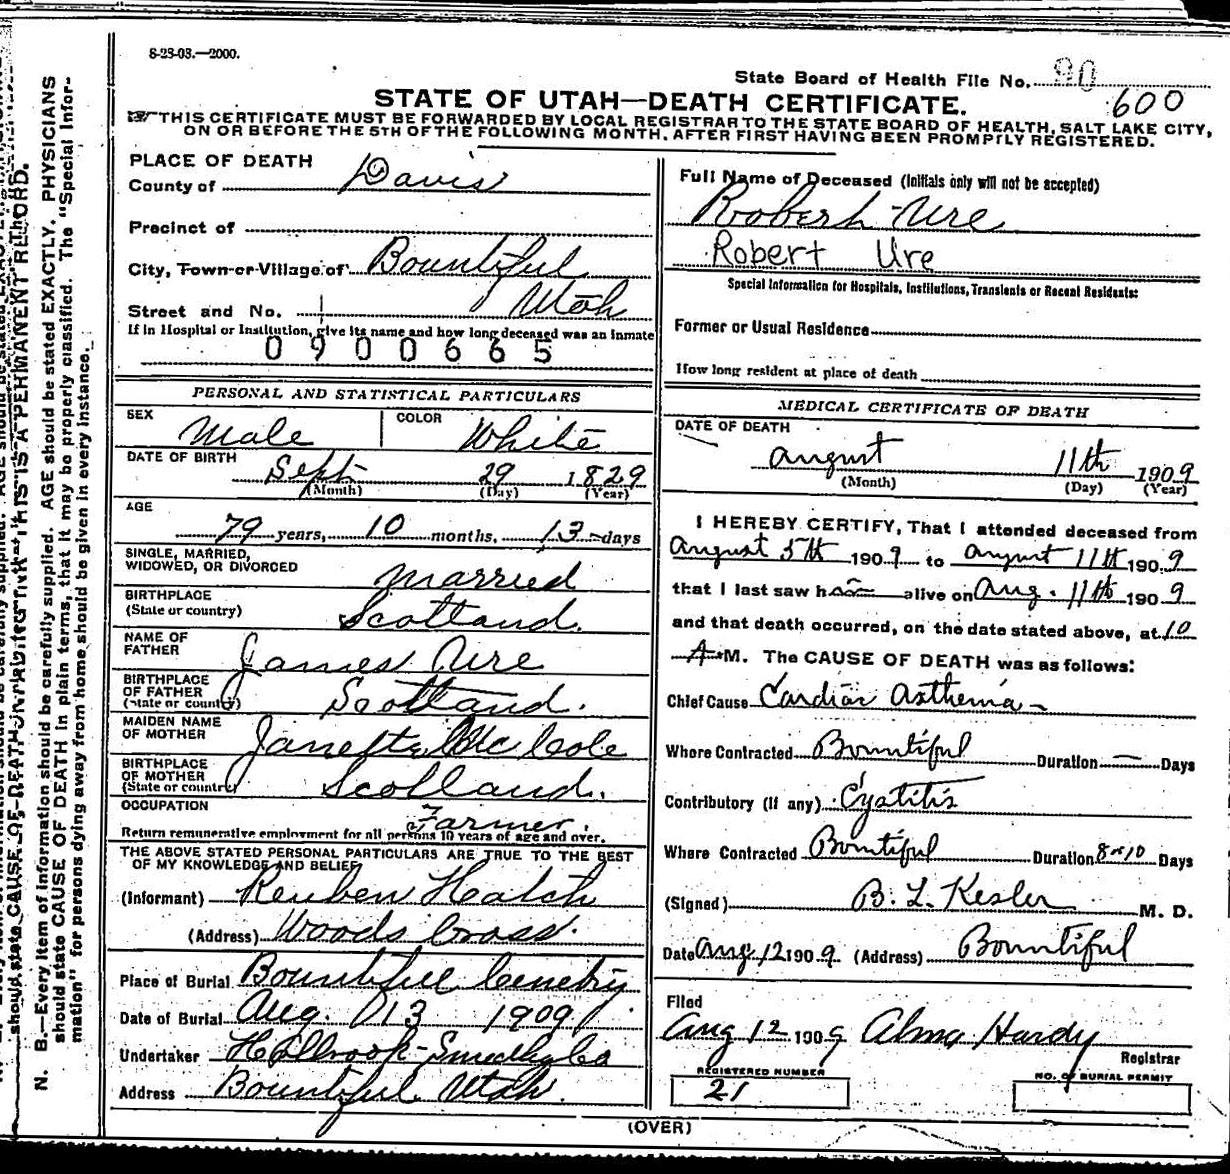 8-23-03.—2000.
State Board of Health File No. 90
600
STATE OF UTAH—DEATH CERTIFICATE.
THIS CERTIFICATE MUST BE FORWARDED BY LOCAL REGISTRAR TO THE STATE BOARD OF HEALTH, SALT LAKE CITY,
ON OR BEFORE THE 5TH OF THE FOLLOWING MONTH, AFTER FIRST HAVING BEEN PROMPTLY REGISTERED.
PLACE OF DEATH
County of Davis
Precinct of
City, Town or Village of Bountiful
Street and No. Utah
If in Hospital or Institution, give its name and how long deceased was an inmate
0900665
PERSONAL AND STATISTICAL PARTICULARS
SEX Male COLOR White
DATE OF BIRTH Sept 29 1829
(Month) (Day) (Year)
AGE
79 years, 10 months, 13 days
SINGLE, MARRIED,
WIDOWED, OR DIVORCED Married
BIRTHPLACE
(State or country) Scotland.
NAME OF
FATHER James Ure
BIRTHPLACE
OF FATHER
(State or country) Scotland.
MAIDEN NAME
OF MOTHER Janette Mc Cole
BIRTHPLACE
OF MOTHER
(State or country) Scotland.
OCCUPATION Farmer.
Return remunerative employment for all persons 10 years of age and over.
THE ABOVE STATED PERSONAL PARTICULARS ARE TRUE TO THE BEST
OF MY KNOWLEDGE AND BELIEF
(Informant) Reuben Hatch
(Address) Woods Cross.
Place of Burial Bountiful Cemetry
Date of Burial Aug. 13 1909
Undertaker Holbrook-Smedly Co
Address Bountiful Utah.
Full Name of Deceased (Initials only will not be accepted)
Robert Ure
Robert Ure
Special Information for Hospitals, Institutions, Transients or Recent Residents:
Former or Usual Residence
How long resident at place of death
MEDICAL CERTIFICATE OF DEATH
DATE OF DEATH
August 11th 1909
(Month) (Day) (Year)
I HEREBY CERTIFY, That I attended deceased from
August 5th 1909 to August 11th 1909
that I last saw him alive on Aug. 11th 1909
and that death occurred, on the date stated above, at 10
A M. The CAUSE OF DEATH was as follows:
Chief Cause Cardiac Asthenia
Where Contracted Bountiful Duration — Days
Contributory (If any) Cystitis
Where Contracted Bountiful Duration 8-10 Days
(Signed) B. L. Kesler M. D.
Date Aug 12 1909 (Address) Bountiful
Filed
Aug 12 1909 Alma Hardy
Registrar
REGISTERED NUMBER
21
NO. OF BURIAL PERMIT
(OVER)
N. B.—Every item of information should be carefully supplied. AGE should be stated EXACTLY. PHYSICIANS
should state CAUSE OF DEATH in plain terms, that it may be properly classified. The "Special Infor-
mation" for persons dying away from home should be given in every instance.